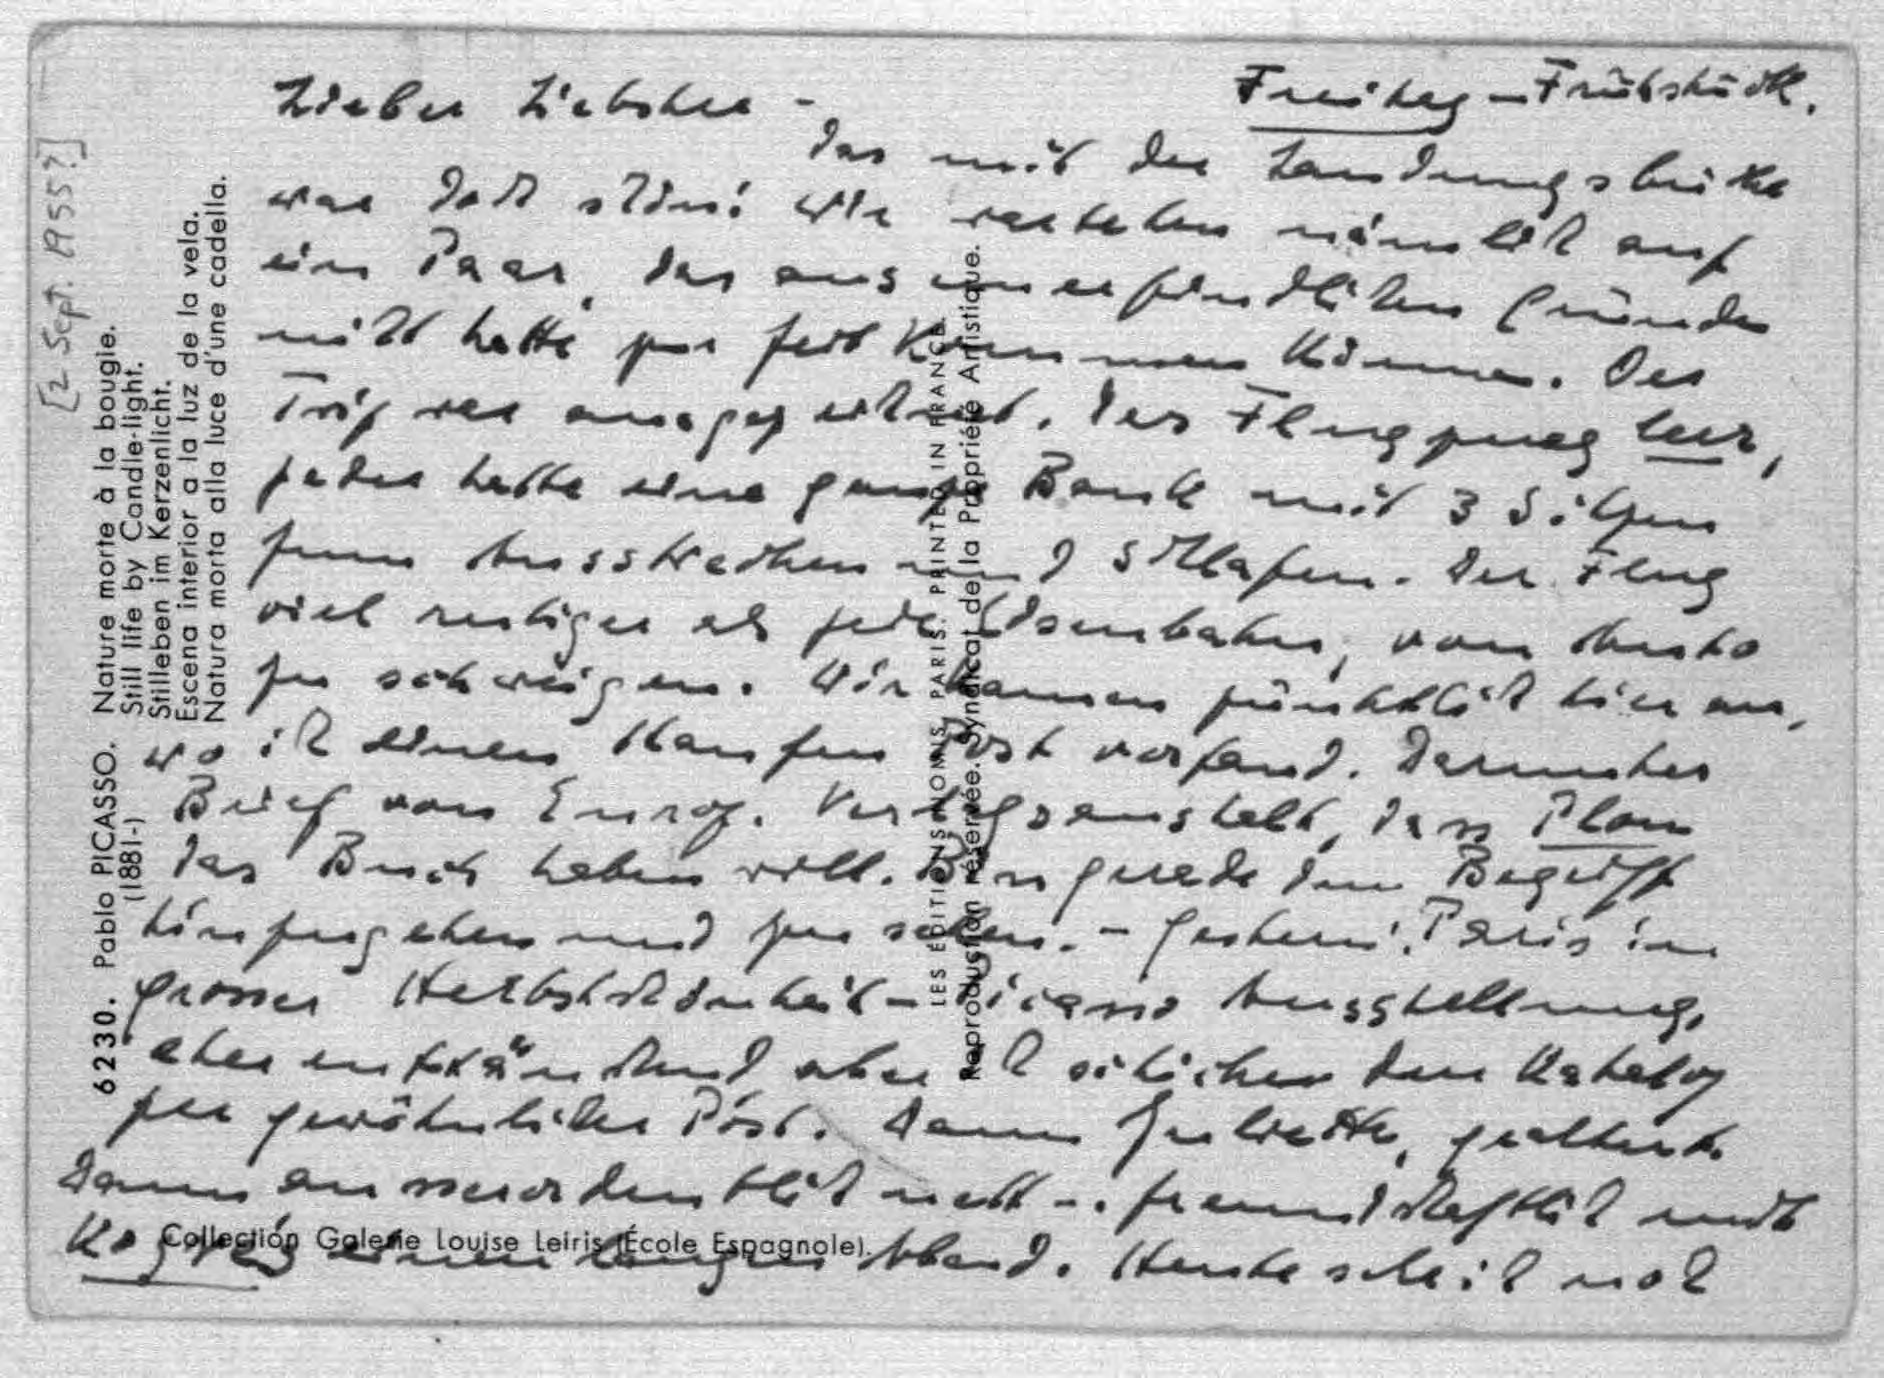 Freitag – Frühstück.
Lieber Liebster –
Das mit der Landungsbrücke
war doch schön! Wir warteten nämlich auf
ein Paar, das aus unerfindlichen Gründen
nicht hatte zur Zeit kommen können. Der
Trip war ausgezeichnet. Das Flugzeug leer,
jeder hatte eine ganze Bank mit 3 Sitzen
zum Ausstrecken und Schlafen. Der Flug
viel ruhiger als jede Eisenbahn, vom Auto
zu schweigen. Wir kamen pünktlich hier an,
wo ich einen Haufen Post vorfand. Darunter
Brief von Europ. Verlagsanstalt, dass Plon
das Buch haben will. Bin gerade im Begriff
hinzugehen und zu sehen. – Gestern: Paris in
grosser Herbstschönheit – Picasso Ausstellung,
eher enttäuschend aber ich schicke den Katalog
per gewöhnlicher Post. Dann Juliette, gealtert
dann ausserordentlich nett –. freundschaftlich mit
einen langen Abend. Heute seh ich noch
[2 Sept. 1955?]
6230. Pablo PICASSO. Nature morte à la bougie.
(1881-) Still life by Candle-light.
Stilleben im Kerzenlicht.
Escena interior a la luz de la vela.
Natura morta alla luce d'une cadella.
LES ÉDITIONS NOMIS, PARIS. PRINTED IN FRANCE.
Reproduction réservée. Syndicat de la Propriété Artistique.
Collectión Galerie Louise Leiris (École Espagnole).